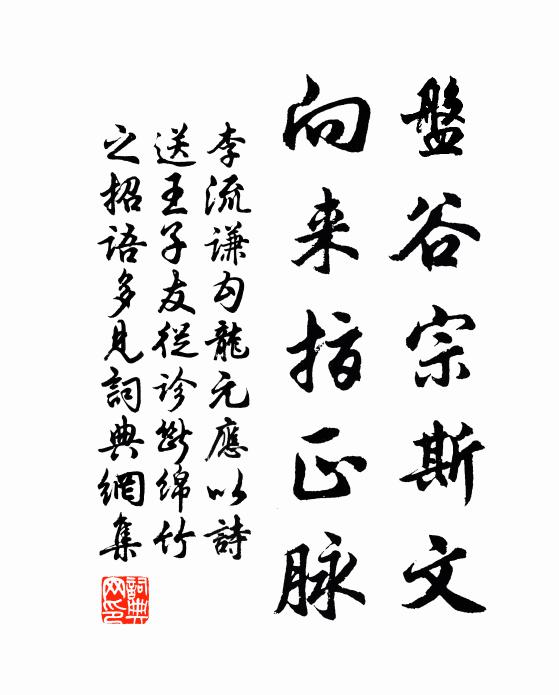 盤谷宗斯文
向来指正脉
李流謙勾龍元應以詩
送王子友從診斷綿竹
之招語多見詞典網集
詞典網印